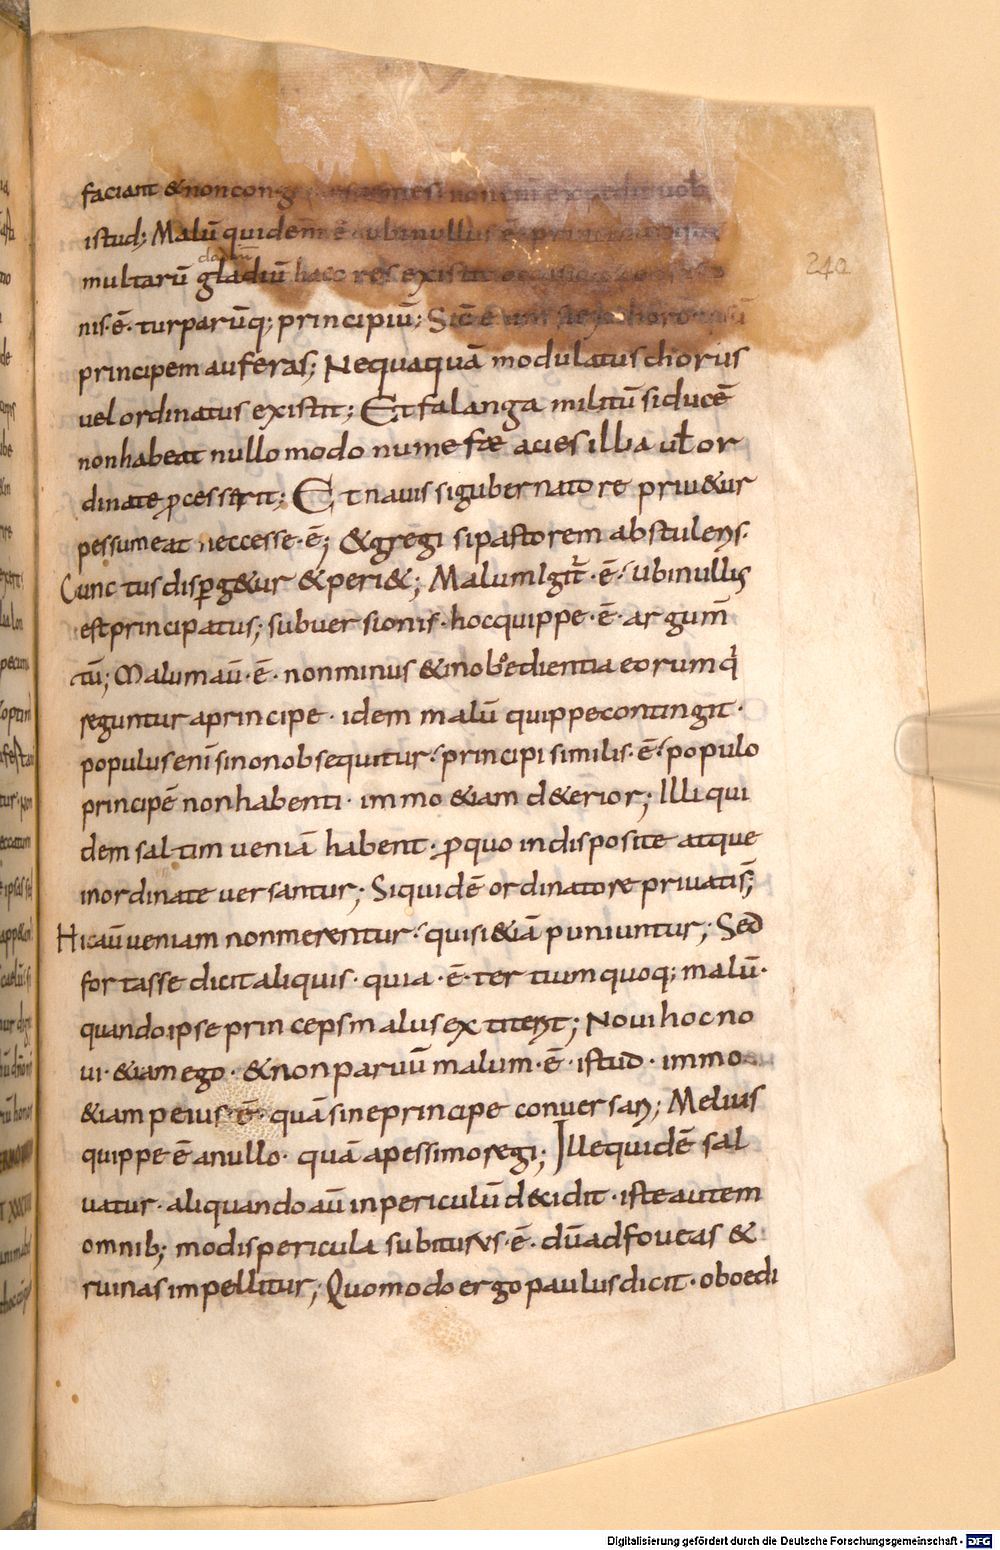 faciant & non cong gementes· non enī expedit uob
istud; Malū quidem ē· ubi nullus ē· principatus
multarū gladiū haec res existit occasio & confusio
nis·ē· turparūq; principiū; Sic ē choro
principem auferas; Nequaquā modulatus chorus
uel ordinatus existit; Et falanga militū si ducē
non habeat nullo modo numefæ acies illba ul̄ or
dinate ꝓcesserit; Et nauis si gubernatore priu&ur
pessumeat neccesse·ē; & gregi si pastorem abstuleris·
Cunctus disꝑg&ur & peri&; Malum Igit̄·ē· Ubi nullis
est principatus; subuersionis· hoc quippe·ē· argum̄
tū; Malum aū·ē· non minus & inoboedientia eorum q̇
reguntur a principe· idem malū quippe contingit·
populus enī si non obsequitur· principi similis·ē· populo
principē non habenti· immo &iam d&erior; Illi qui
dem saltim ueniā habent· ꝓ quo indisposite atque
inordinate uersantur; Siquidē ordinatore priuatis;
Hic aū ueniam non merentur· qui si &iā puniuntur; Sed
fortasse dicit aliquis· quia·ē· tertium quoq; malū·
quando ipse princeps malus extiterit; Noui hoc no
ui· &iam ego· & non paruū malum·ē· istud· immo
&iam peius·ē· quā sine principe conuersari; Melius
quippe ē a nullo· quā a pessimo regi; Ille quidē sal
uatur· aliquando aū in periculū d&idit· iste autem
omnib; modis pericula subiturus·ē· dū ad foueas &
ruinas impellitur; Quomodo ergo paulus dicit· oboedi
240
Digitalisierung gefördert durch die Deutsche Forschungsgemeinschaft - DFG